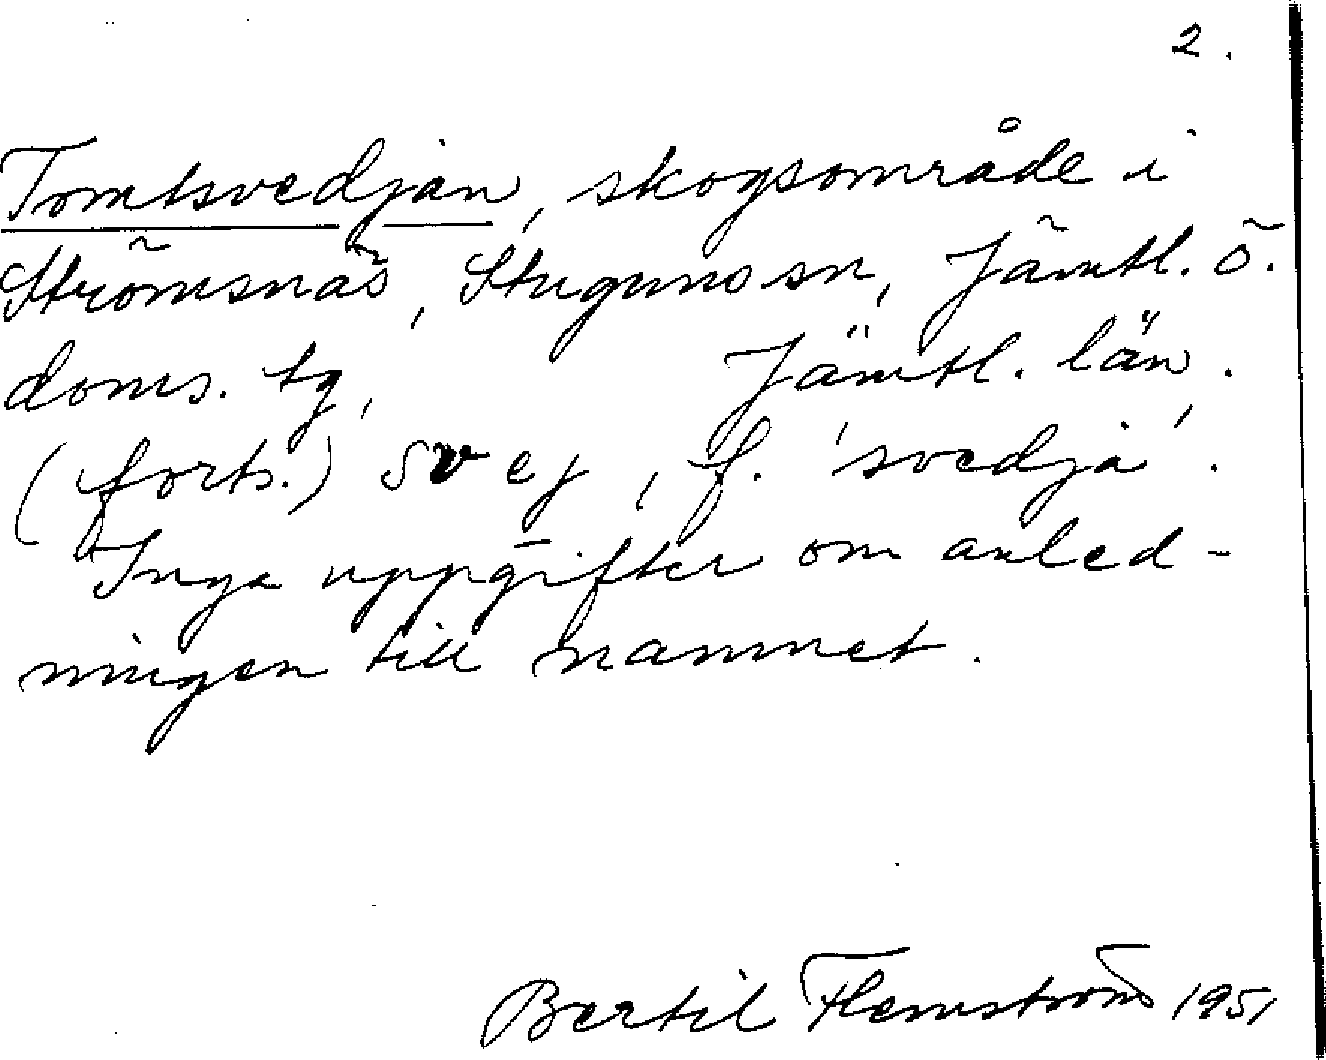 2.
Tomtsvedjan, skogsområde i
Strömsnäs, Stuguns sn, Jämtl. ö.
doms. tg, Jämtl. län.
(forts.) svej, f. 'svedja'.
Inga uppgifter om anled-
ningen till namnet.
Bertil Flemström 1951